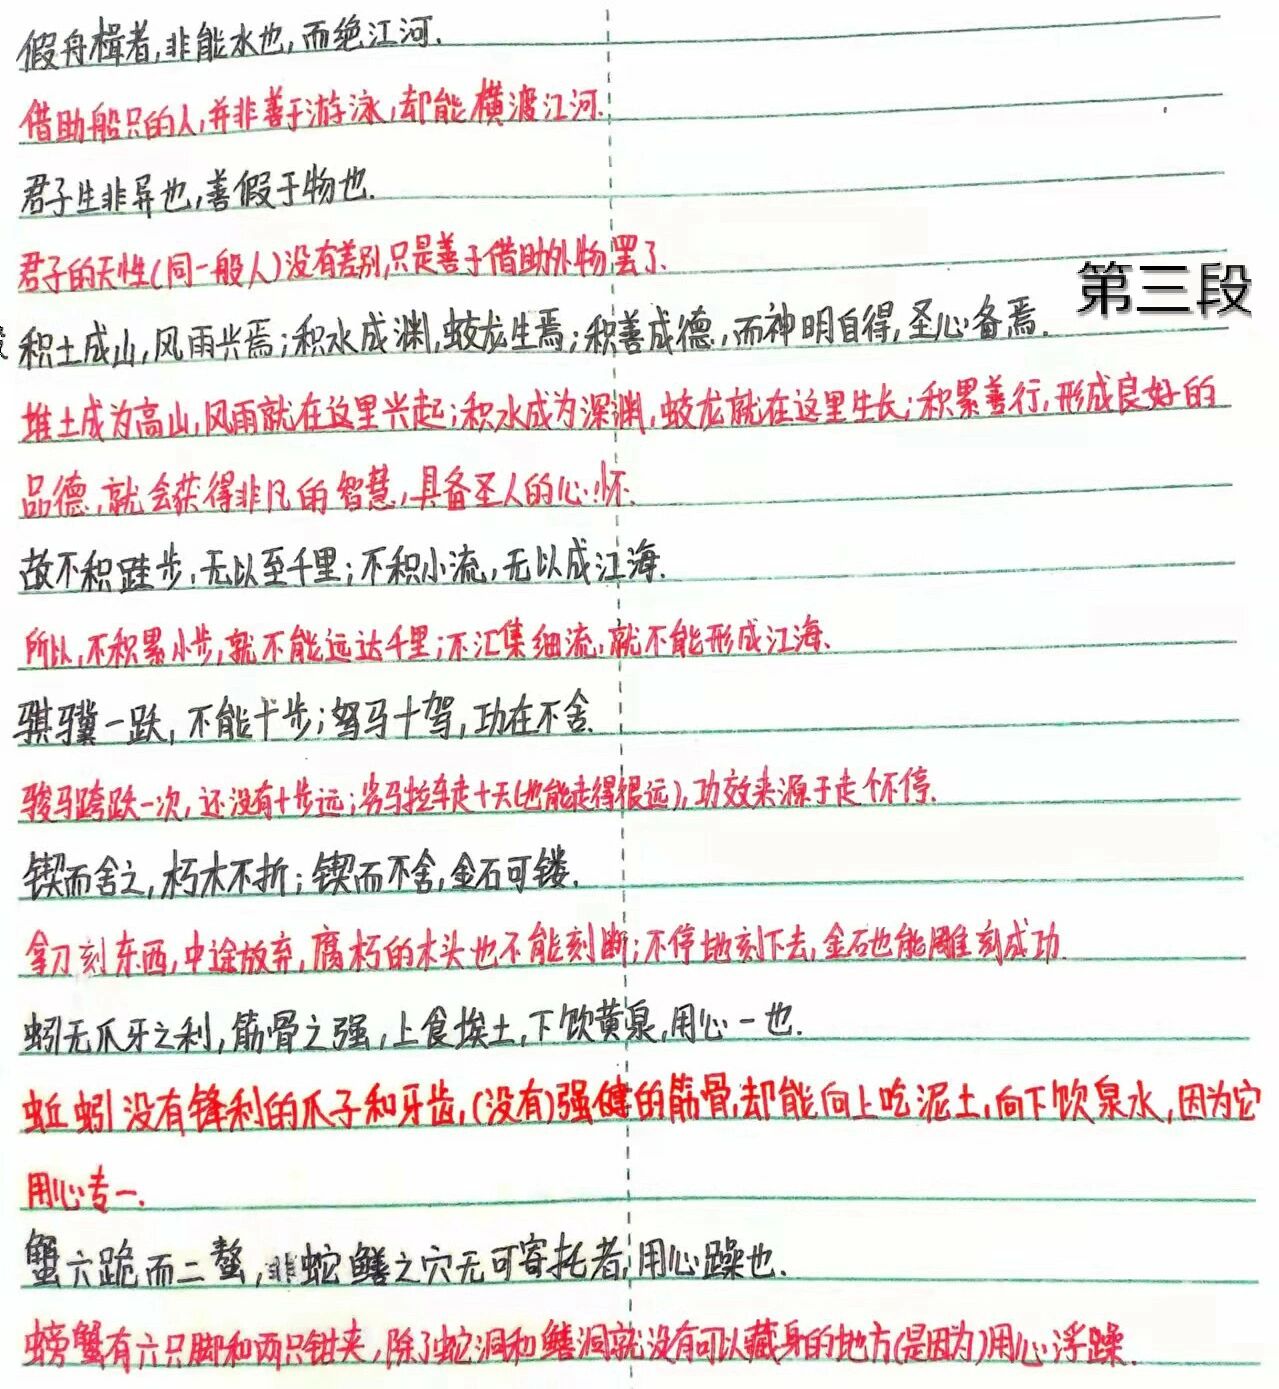 假舟楫者,非能水也,而绝江河.
借助船只的人,并非善于游泳,却能横渡江河.
君子生非异也,善假于物也.
君子的天性(同一般人)没有差别,只是善于借助外物罢了.
第三段
积土成山,风雨兴焉;积水成渊,蛟龙生焉;积善成德,而神明自得,圣心备焉.
堆土成为高山,风雨就在这里兴起;积水成为深渊,蛟龙就在这里生长;积累善行,形成良好的
品德,就会获得非凡的智慧,具备圣人的心怀.
故不积跬步,无以至千里;不积小流,无以成江海.
所以,不积累小步,就不能远达千里;不汇集细流,就不能形成江海.
骐骥一跃,不能十步;驽马十驾,功在不舍.
骏马跨跃一次,还没有十步远;劣马拉车走十天(也能走得很远),功效来源于走个不停.
锲而舍之,朽木不折;锲而不舍,金石可镂.
拿刀刻东西,中途放弃,腐朽的木头也不能刻断;不停地刻下去,金石也能雕刻成功.
蚓无爪牙之利,筋骨之强,上食埃土,下饮黄泉,用心一也.
蚯蚓没有锋利的爪子和牙齿,(没有)强健的筋骨,却能向上吃泥土,向下饮泉水,因为它
用心专一.
蟹六跪而二螯,非蛇鳝之穴无可寄托者,用心躁也.
螃蟹有六只脚和两只钳夹,除了蛇洞和鳝洞就没有可以藏身的地方(是因为)用心浮躁.